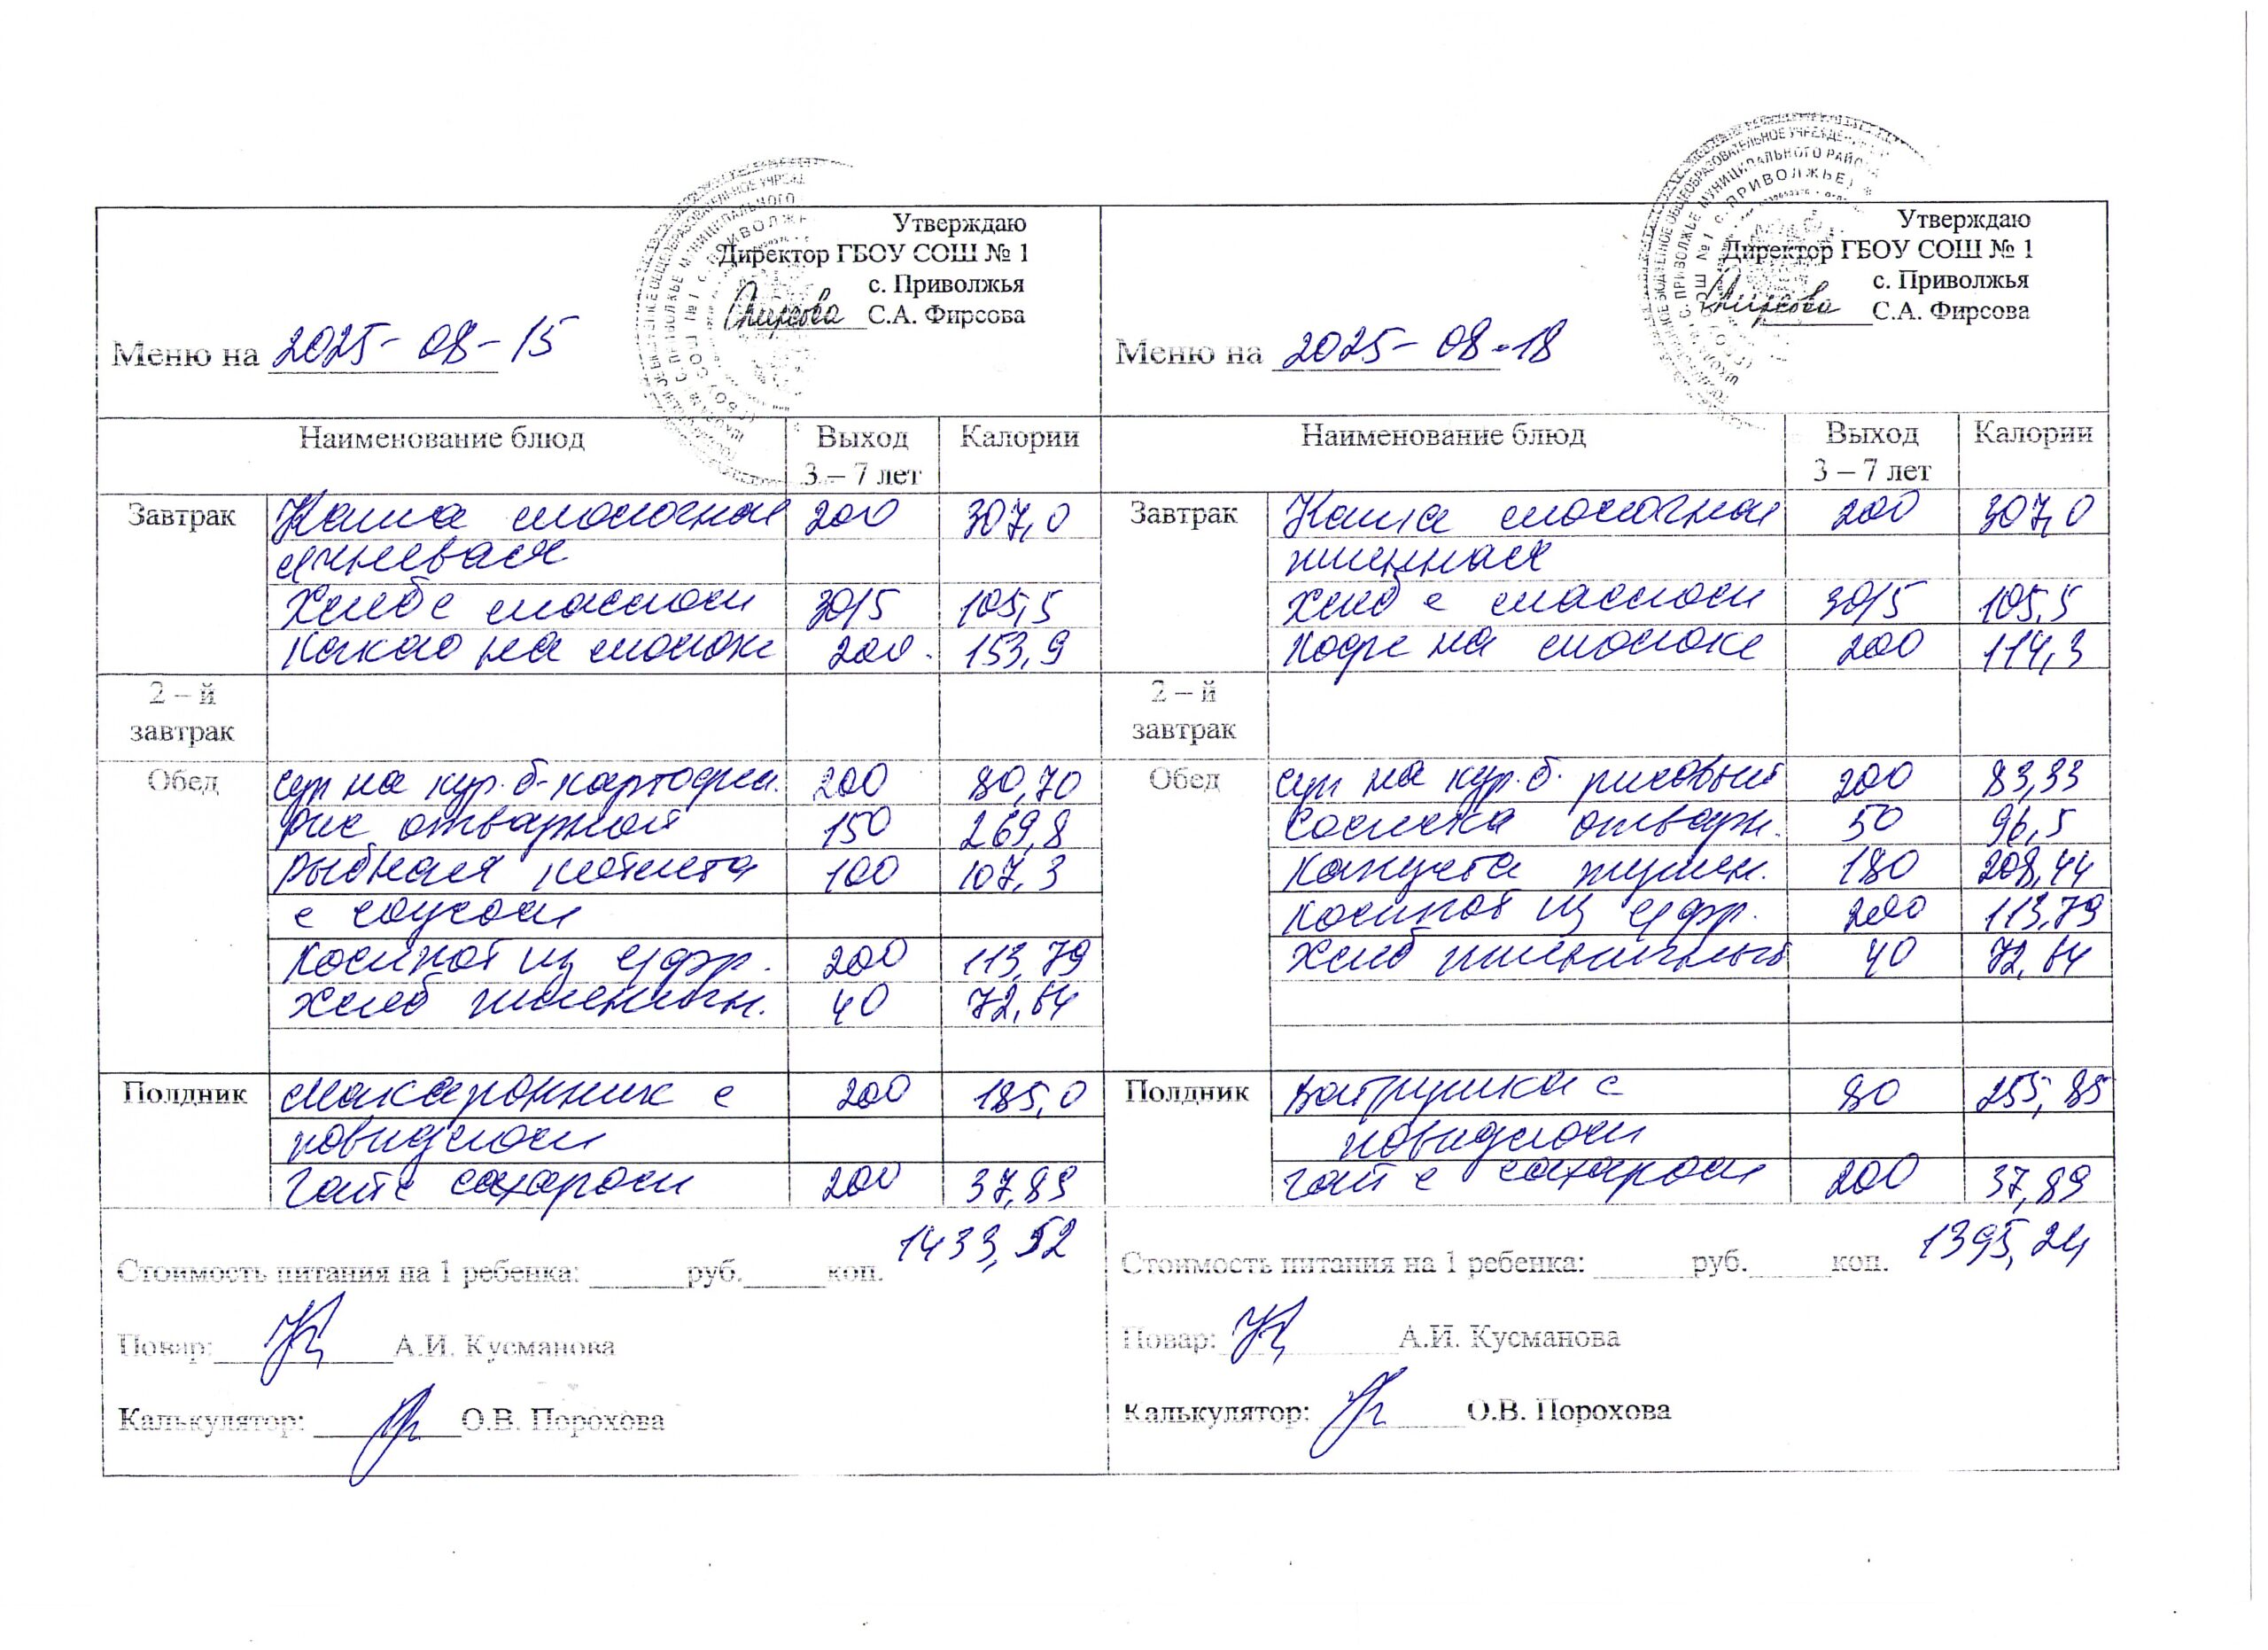 Утверждаю
Директор ГБОУ СОШ № 1
с. Приволжья
С.А. Фирсова
Меню на 2025-08-15
Наименование блюд Выход 3 – 7 лет Калории
Завтрак Каша молочная 200 307,0
ячневая
Хлеб с маслом 30/5 105,5
Какао на молоке 200 153,9
2 – й завтрак
Обед суп на кур.б-картофел. 200 80,70
Рис отварной 150 269,8
Рыбная котлета 100 107,3
с соусом
Компот из с/фр. 200 113,79
Хлеб пшеничн. 40 72,64
Полдник Макаронник с 200 185,0
повидлом
Чай с сахаром 200 37,89
1433,52
Стоимость питания на 1 ребенка: ______руб.______коп.
Повар: А.И. Кусманова
Калькулятор: О.В. Порохова
Утверждаю
Директор ГБОУ СОШ № 1
с. Приволжья
С.А. Фирсова
Меню на 2025-08-18
Наименование блюд Выход 3 – 7 лет Калории
Завтрак Каша молочная 200 307,0
пшенная
Хлеб с маслом 30/5 105,5
Кофе на молоке 200 114,3
2 – й завтрак
Обед суп на кур.б. рисовый 200 83,33
Сосиска отварн. 50 96,5
Капуста тушен. 180 208,44
Компот из с/фр. 200 113,79
Хлеб пшеничный 40 72,64
Полдник Ватрушка с 80 255,85
повидлом
Чай с сахаром 200 37,89
1395,24
Стоимость питания на 1 ребенка: ______руб.______коп.
Повар: А.И. Кусманова
Калькулятор: О.В. Порохова